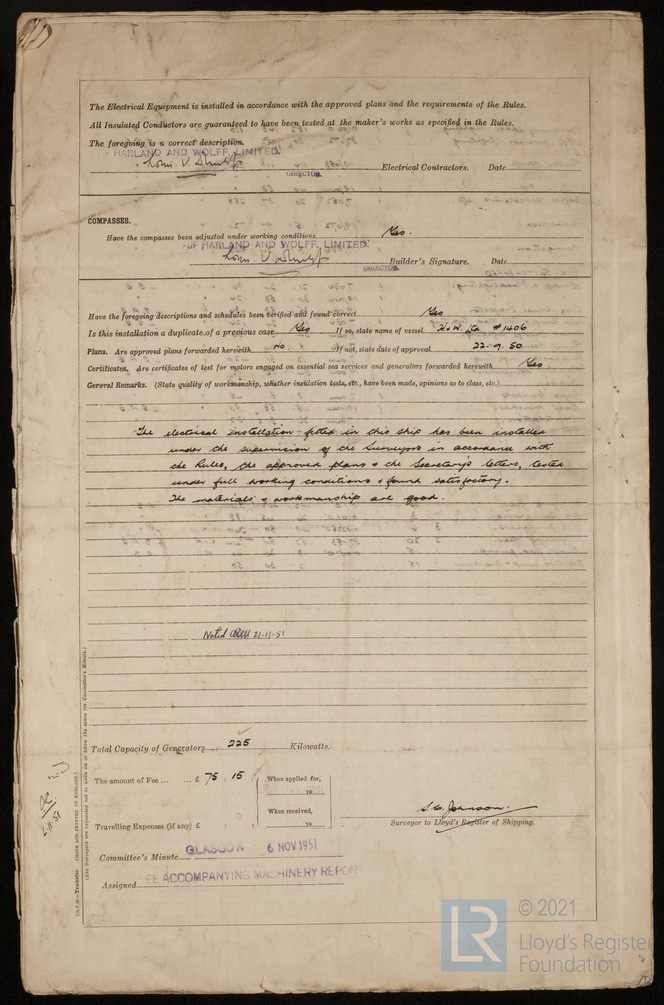 The Electrical Equipment is installed in accordance with the approved plans and the requirements of the Rules.
All Insulated Conductors are guaranteed to have been tested at the maker's works as specified in the Rules.
The foregoing is a correct description.
HARLAND AND WOLFF, LIMITED.
Electrical Contractors. Date
DIRECTOR.
COMPASSES.
Have the compasses been adjusted under working conditions Yes.
HARLAND AND WOLFF, LIMITED.
Builder's Signature. Date
DIRECTOR.
Have the foregoing descriptions and schedules been verified and found correct Yes
Is this installation a duplicate of a previous case Yes If so, state name of vessel H&W. Ltd #1406
Plans. Are approved plans forwarded herewith No. If not, state date of approval 22.9.50
Certificates. Are certificates of test for motors engaged on essential sea services and generators forwarded herewith Yes
General Remarks. (State quality of workmanship, whether insulation tests, etc., have been made, opinions as to class, etc.)
The electrical installation fitted in this ship has been installed
under the supervision of the Surveyors in accordance with
the Rules, the approved plans & the Secretary's letters, tested
under full working conditions & found satisfactory.
The materials & workmanship are good.
Noted 21-11-51
Total Capacity of Generators 225 Kilowatts.
The amount of Fee ... ... £ 75 : 15 : When applied for,
19
When received,
19
Travelling Expenses (if any) £ : :
S. C. Johnson.
Surveyor to Lloyd's Register of Shipping.
Committee's Minute GLASGOW 6 NOV 1951
Assigned ACCOMPANYING MACHINERY REPOR
(MADE AND PRINTED IN ENGLAND.)
(The Surveyors are requested not to write on or below the space for Committee's Minute.)
LR
© 2021
Lloyd's Register
Foundation